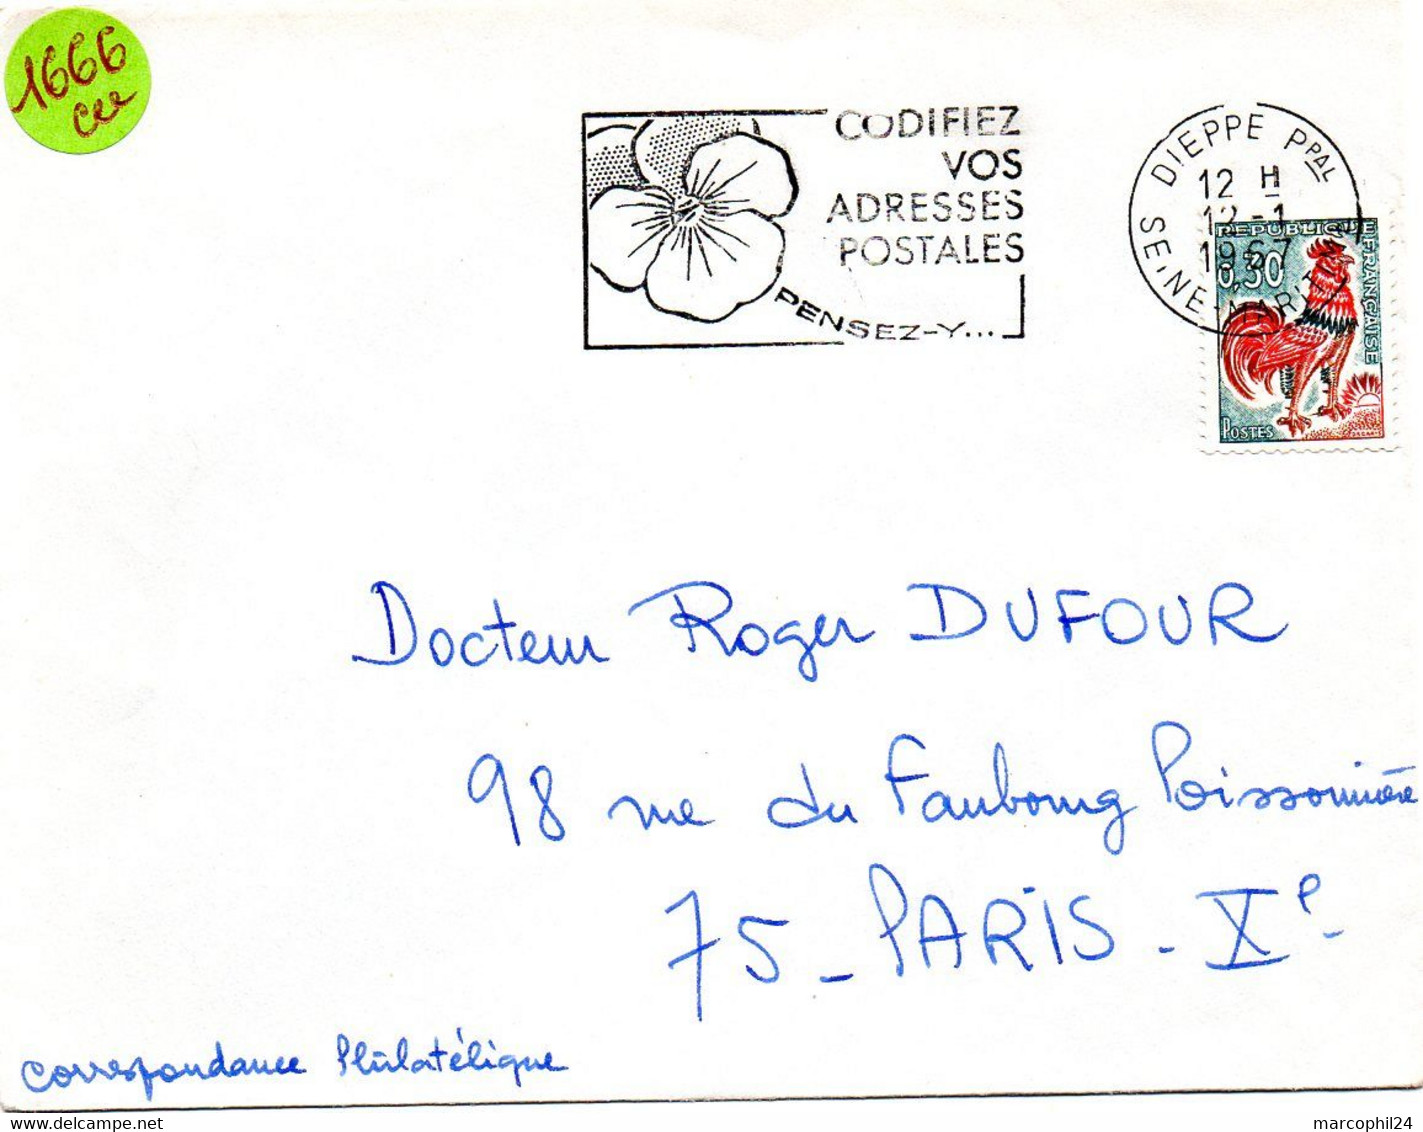 1666
CODIFIEZ
VOS
ADRESSES
POSTALES
PENSEZ-Y...
DIEPPE PPAL
12 H
12-1
1967
SEINE-MARITIME
REPUBLIQUE FRANÇAISE
0,30
POSTES
Docteur Roger DUFOUR
98 rue du Faubourg Poissonnière
75 - PARIS - Xe -
Correspondance Philatélique
marcophil24